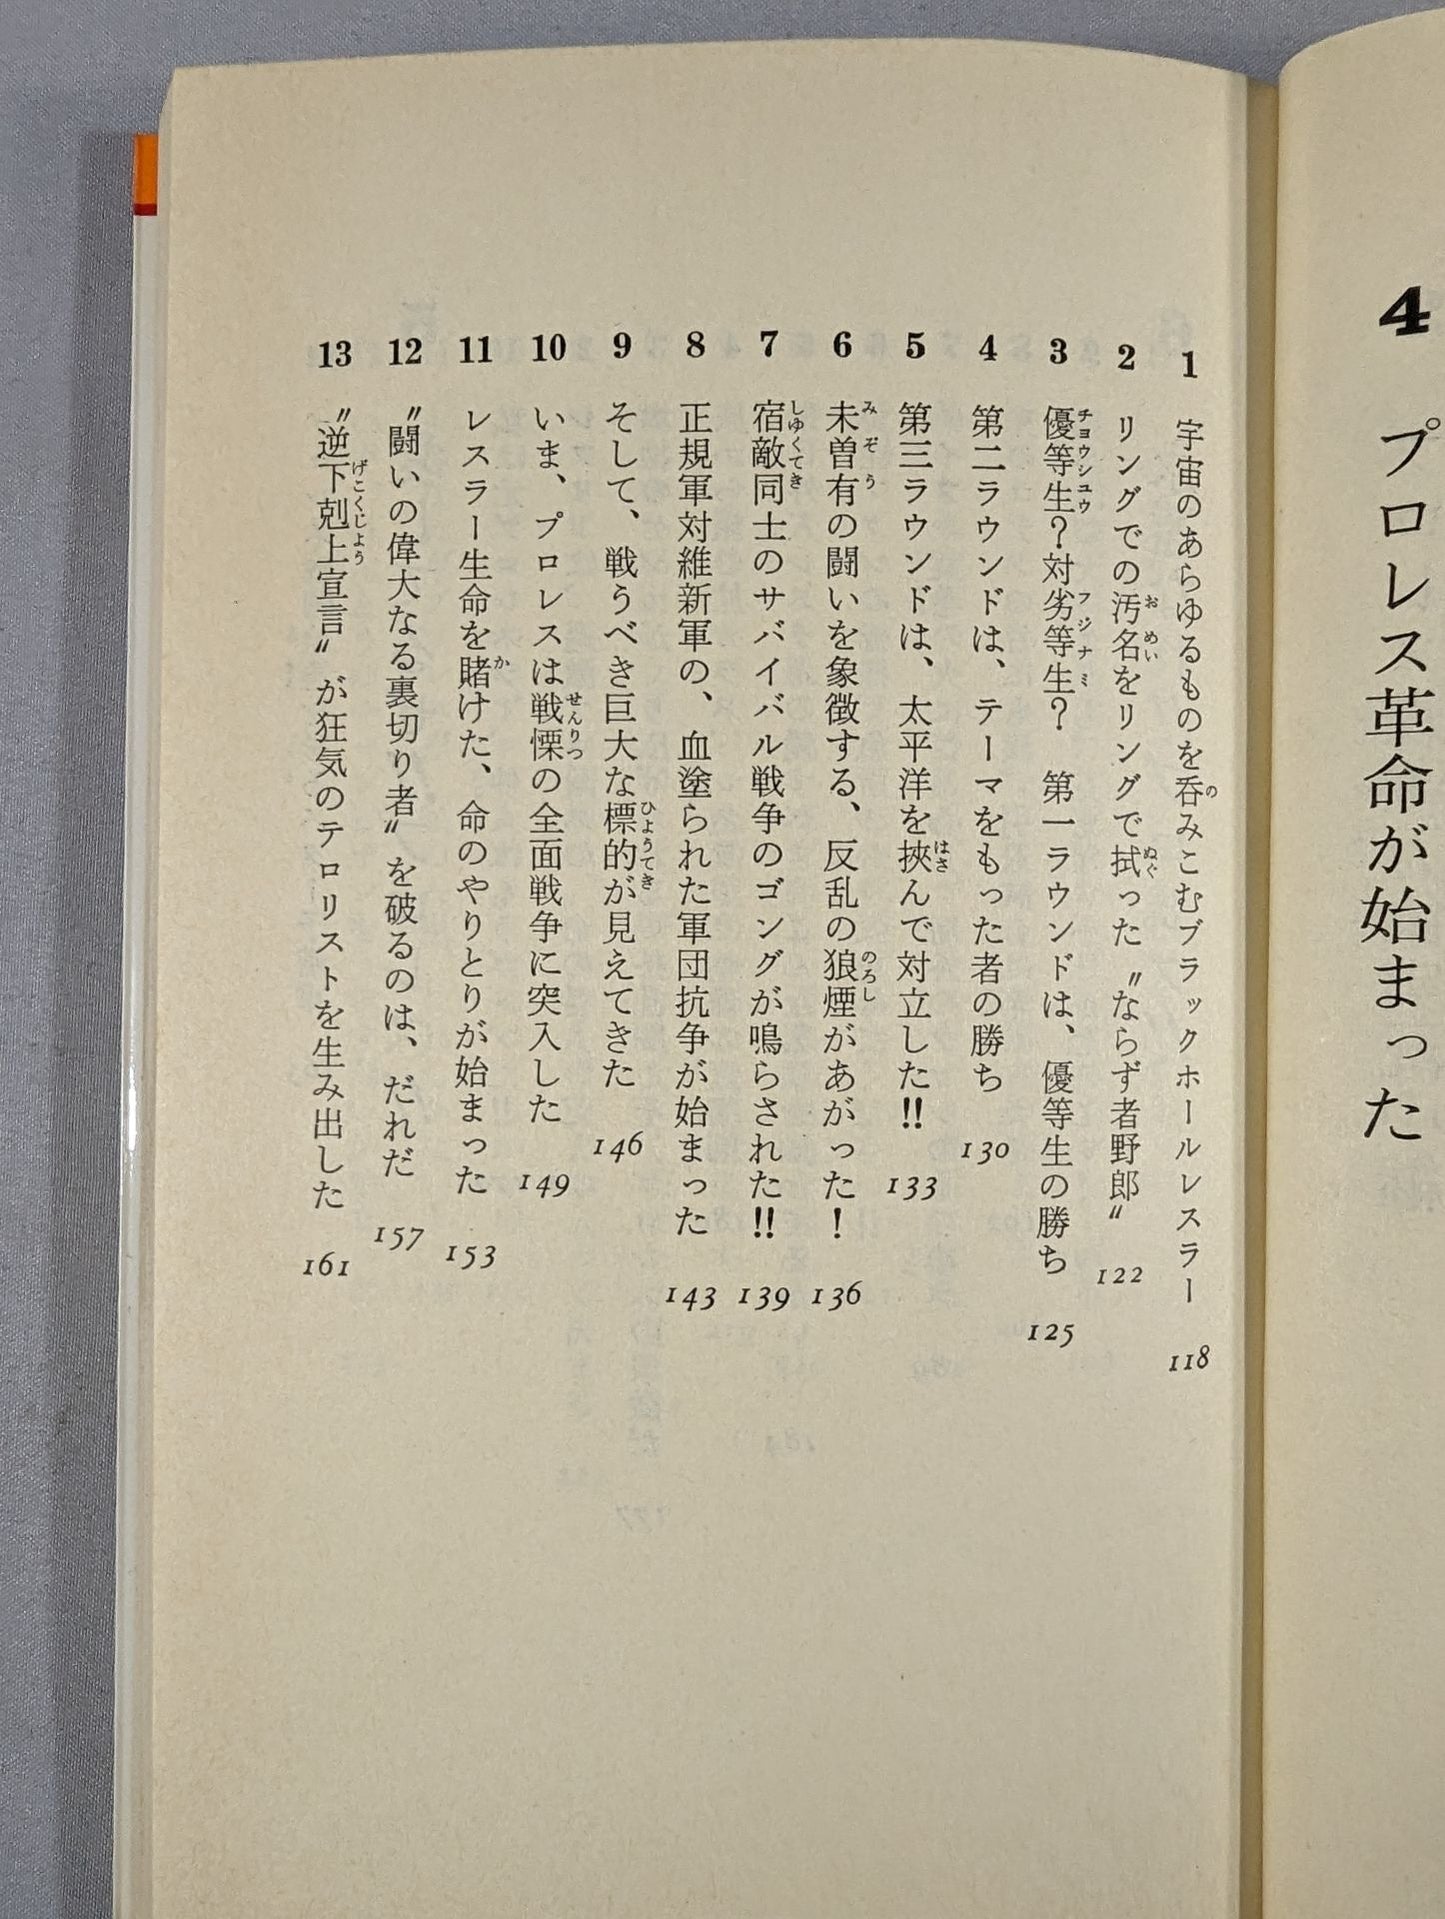 4 プロレス革命が始まった
1 宇宙のあらゆるものを呑みこむブラックホールレスラー 118
2 リングでの汚名をリングで拭った〝ならず者野郎〟 122
3 優等生?対劣等生? 第一ラウンドは、優等生の勝ち 125
4 第二ラウンドは、テーマをもった者の勝ち 130
5 第三ラウンドは、太平洋を挾んで対立した!! 133
6 未曽有の闘いを象徴する、反乱の狼煙があがった! 136
7 宿敵同士のサバイバル戦争のゴングが鳴らされた!! 139
8 正規軍対維新軍の、血塗られた軍団抗争が始まった 143
9 そして、戦うべき巨大な標的が見えてきた 146
10 いま、プロレスは戦慄の全面戦争に突入した 149
11 レスラー生命を賭けた、命のやりとりが始まった 153
12 〝闘いの偉大なる裏切り者〟を破るのは、だれだ 157
13 〝逆下剋上宣言〟が狂気のテロリストを生み出した 161